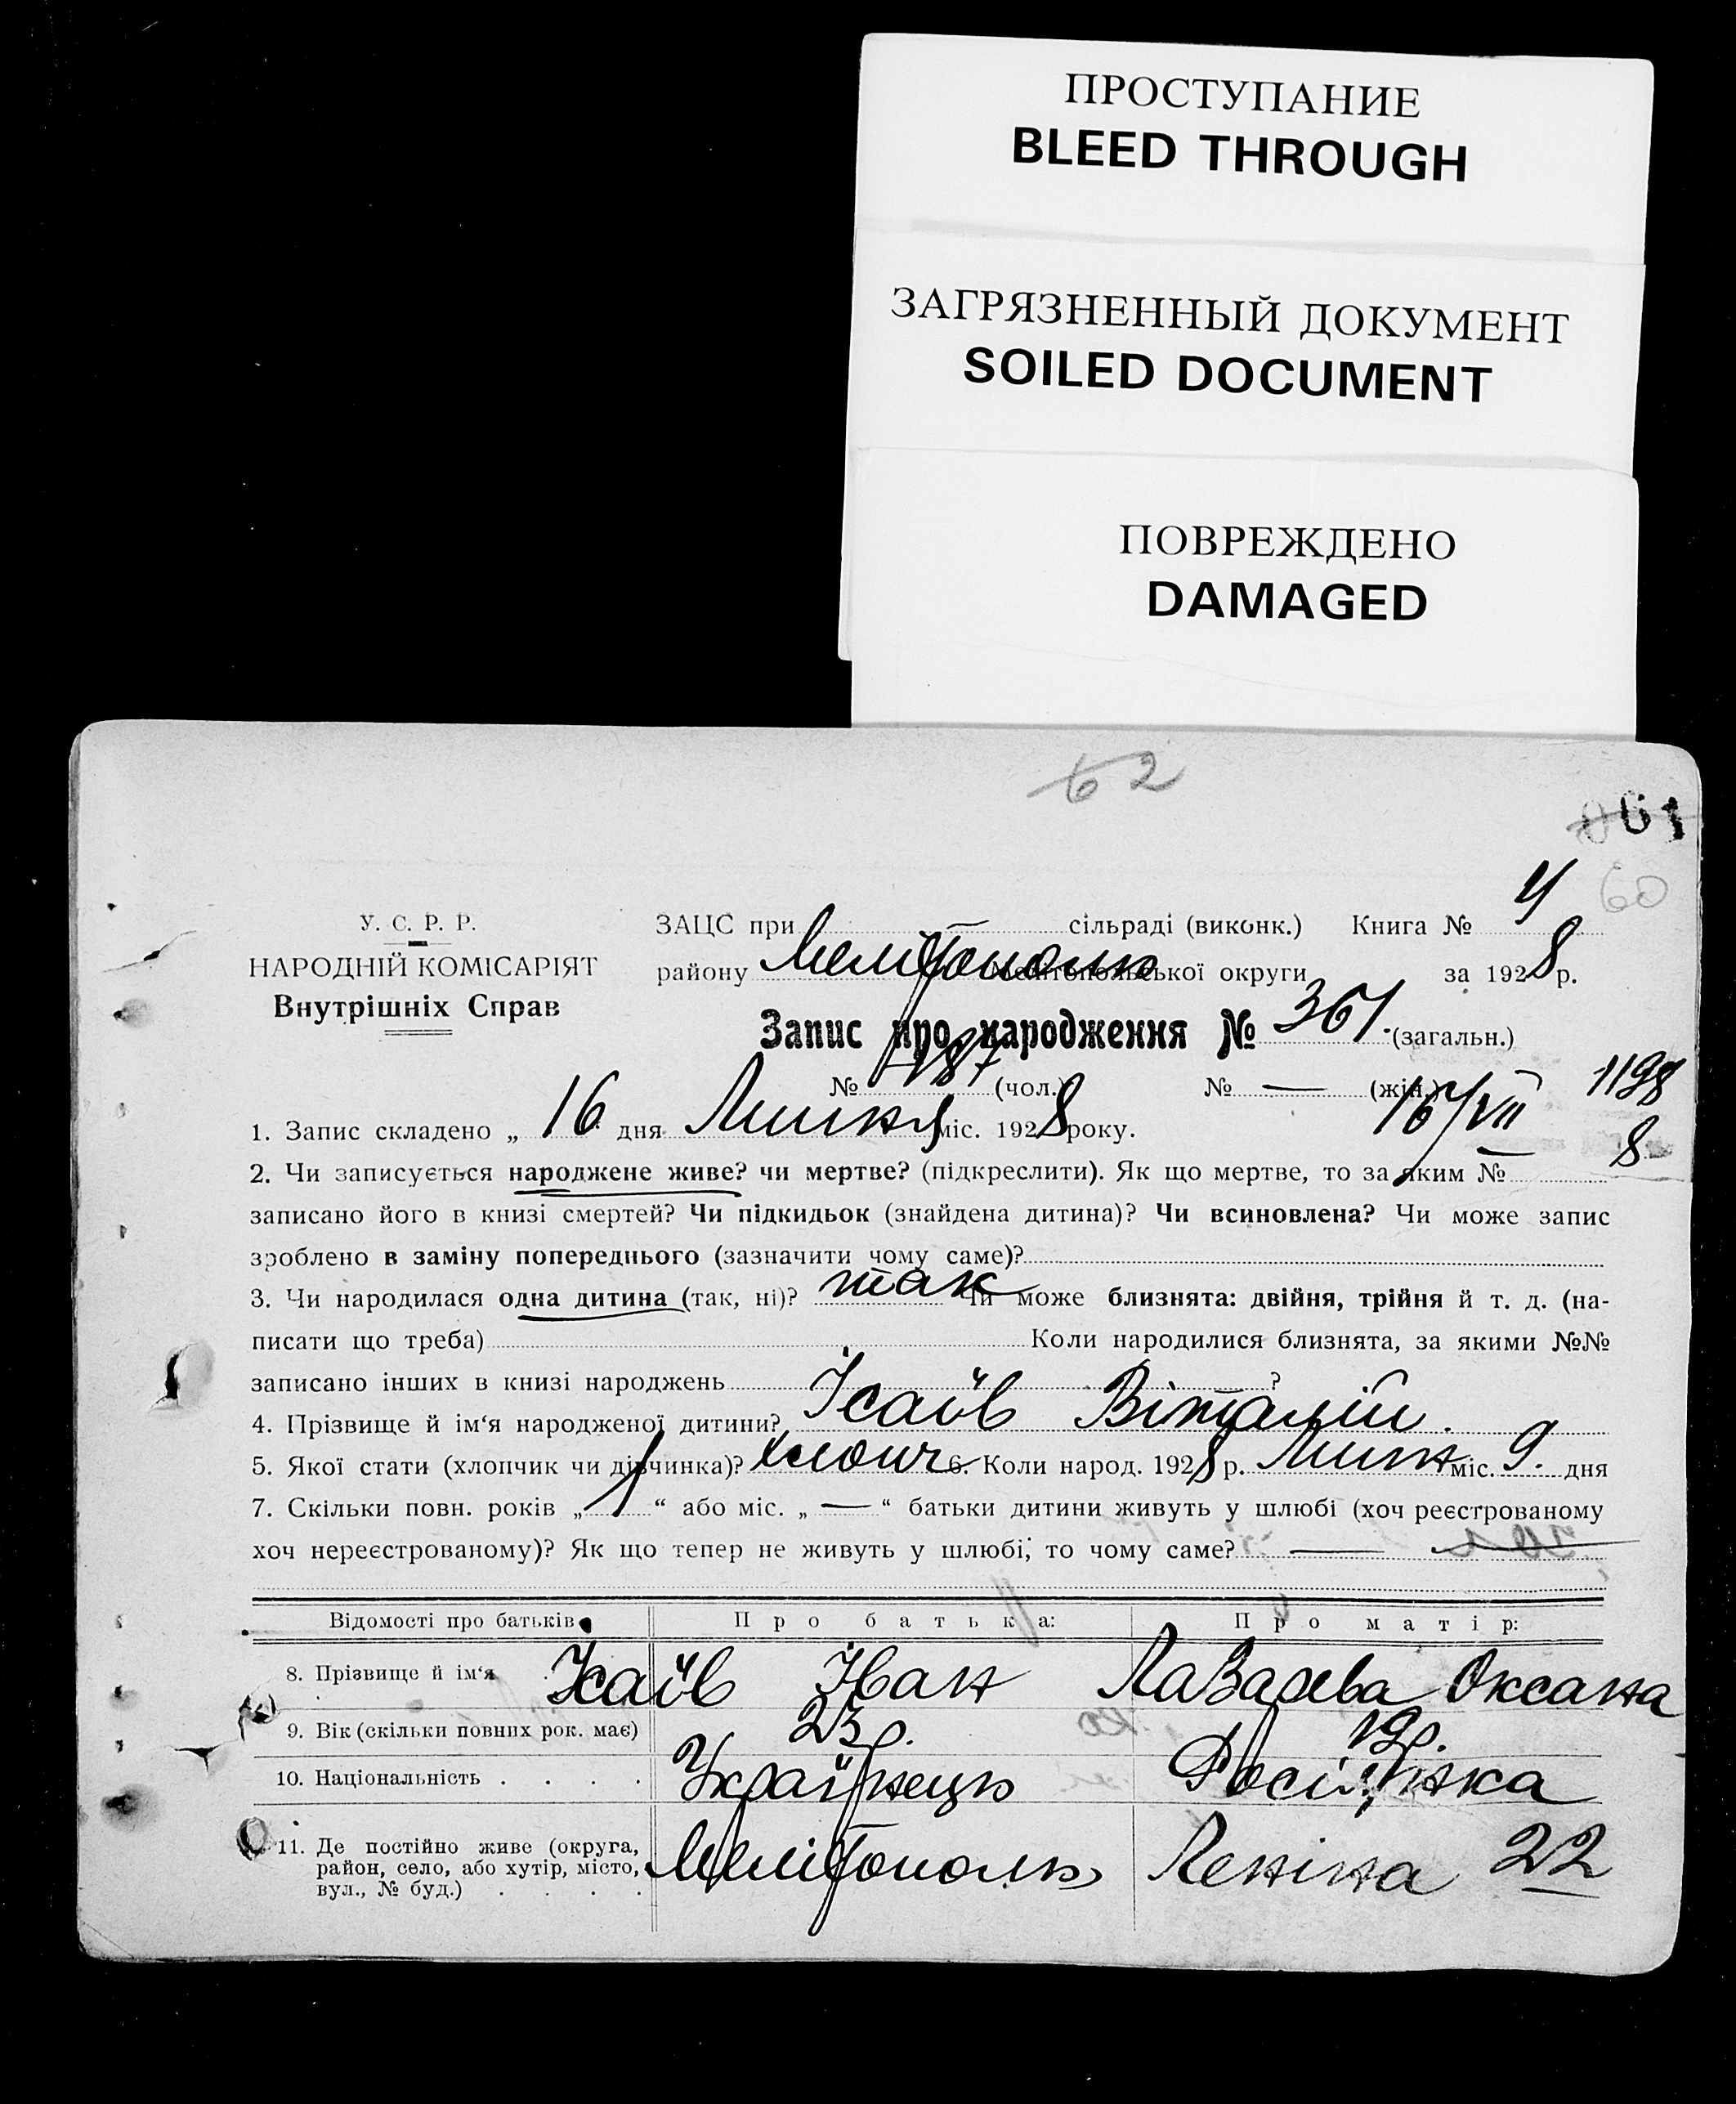 ПРОСТУПАНИЕ
BLEED THROUGH
ЗАГРЯЗНЕННЫЙ ДОКУМЕНТ
SOILED DOCUMENT
ПОВРЕЖДЕНО
DAMAGED
62
061
60
У. С. Р. Р.
НАРОДНІЙ КОМІСАРІЯТ
Внутрішніх Справ
ЗАЦС при сільраді (виконк.) Книга № 4
району Мелітополь Мелітопольської округи за 1928 р.
Запис про народження № 361. (загальн.)
№ 187 (чол.) № — (жін.)
16/VII 1198
8
1. Запис складено „ 16 дня Липня міс. 1928 року.
2. Чи записується народжене живе? чи мертве? (підкреслити). Як що мертве, то за яким №
записано його в книзі смертей? Чи підкидьок (знайдена дитина)? Чи всиновлена? Чи може запис
зроблено в заміну попереднього (зазначити чому саме)?
3. Чи народилася одна дитина (так, ні)? так Чи може близнята: двійня, трійня й т. д. (на-
писати що треба) Коли народилися близнята, за якими №№
записано інших в книзі народжень ?
4. Прізвище й ім‘я народженої дитини? Ісаїв Віталій.
5. Якої стати (хлопчик чи дівчинка)? хлопч 6. Коли народ. 1928 р. Липн міс. 9. дня
7. Скільки повн. років „ 1 “ або міс. „ — “ батьки дитини живуть у шлюбі (хоч реєстрованому
хоч нереєстрованому)? Як що тепер не живуть у шлюбі, то чому саме? —
Відомості про батьків Про батька: Про матір:
8. Прізвище й ім‘я Ісаїв Іван Лазарева Оксана
9. Вік (скільки повних рок. має) 23 р. 19 р.
10. Національність . . . . Українець Росіянка
11. Де постійно живе (округа, район, село, або хутір, місто, вул., № буд.) . . . . Мелітополь Леніна 22